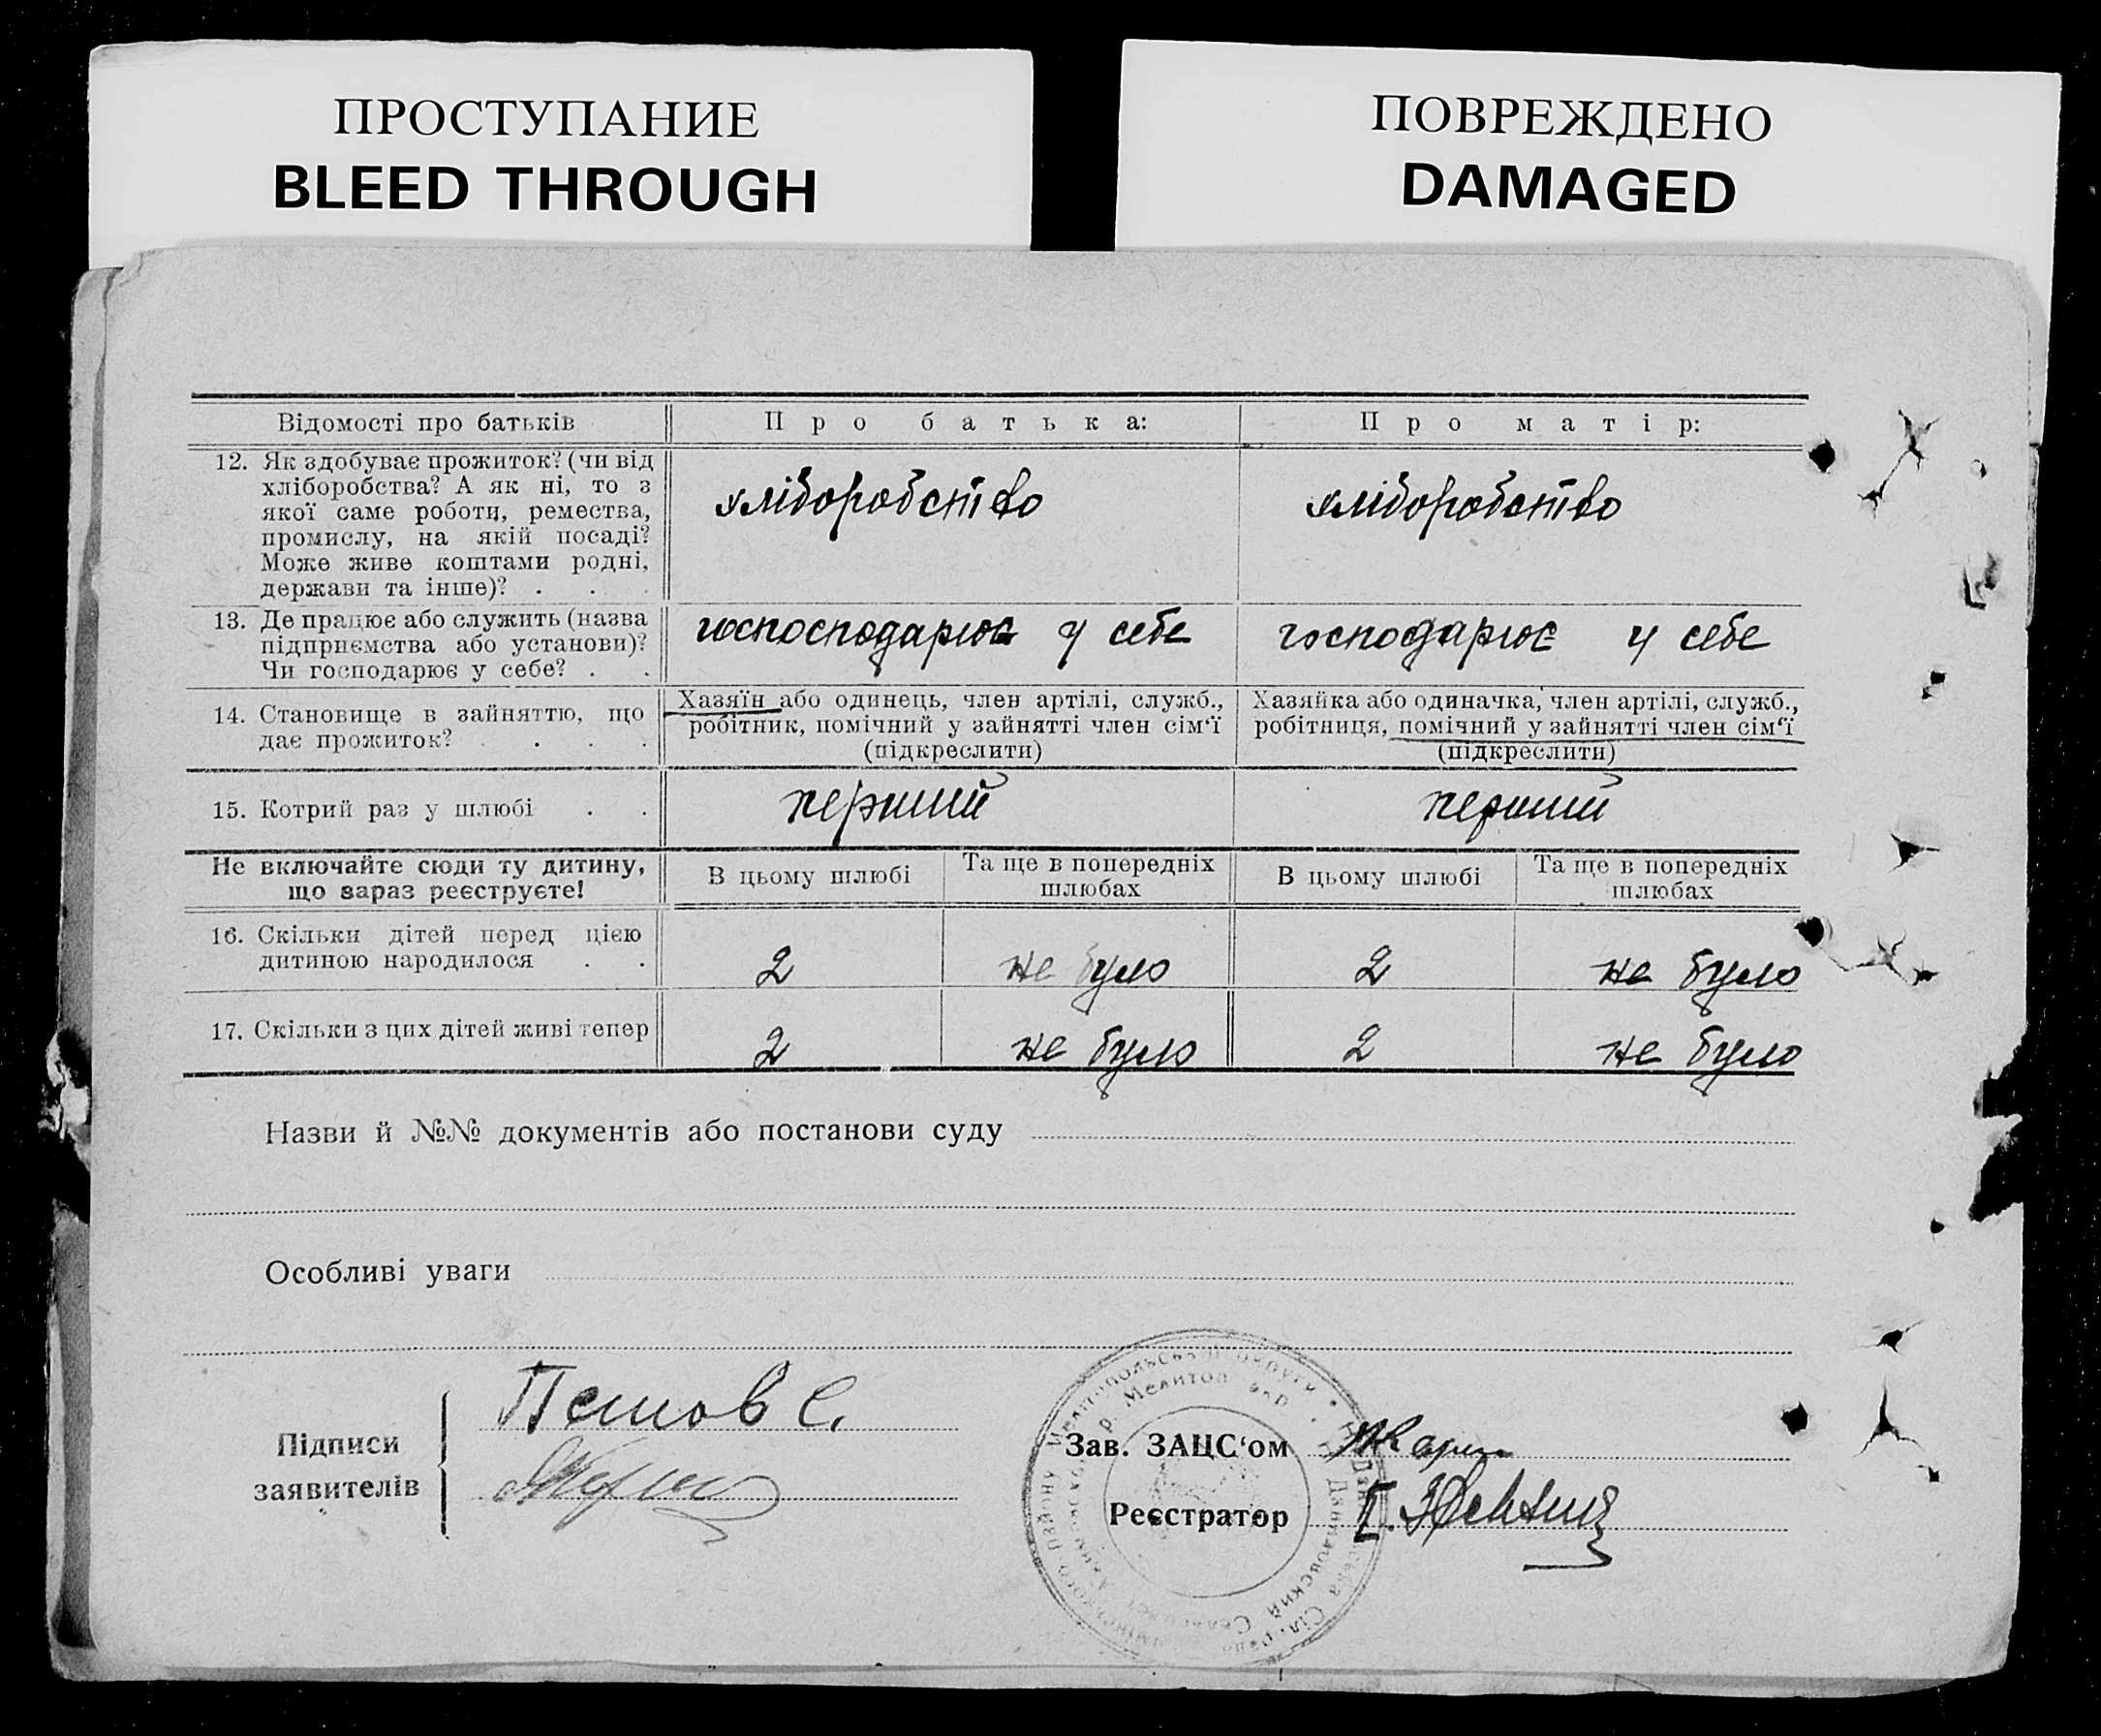 ПРОСТУПАНИЕ
BLEED THROUGH
ПОВРЕЖДЕНО
DAMAGED
Відомості про батьків
Про батька:
Про матір:
12. Як здобуває прожиток? (чи від
хліборобства? А як ні, то з
якої саме роботи, ремества,
промислу, на якій посаді?
Може живе коштами родні,
держави та інше)? . .
хліборобство
хліборобство
13. Де працює або служить (назва
підприємства або установи)?
Чи господарює у себе? . .
госпосподарює у себе
господарює у себе
14. Становище в зайняттю, що
дає прожиток? . . . .
Хазяїн або одинець, член артілі, служб.,
робітник, помічний у зайнятті член сім‘ї
(підкреслити)
Хазяйка або одиначка, член артілі, служб.,
робітниця, помічний у зайнятті член сім‘ї
(підкреслити)
15. Котрий раз у шлюбі . .
перший
перший
Не включайте сюди ту дитину,
що зараз реєструєте!
В цьому шлюбі
Та ще в попередніх
шлюбах
В цьому шлюбі
Та ще в попередніх
шлюбах
16. Скільки дітей перед цією
дитиною народилося . .
2
не було
2
не було
17. Скільки з цих дітей живі тепер
2
не було
2
не було
Назви й №№ документів або постанови суду
Особливі уваги
Підписи
заявителів
Зав. ЗАЦС‘ом
Реєстратор